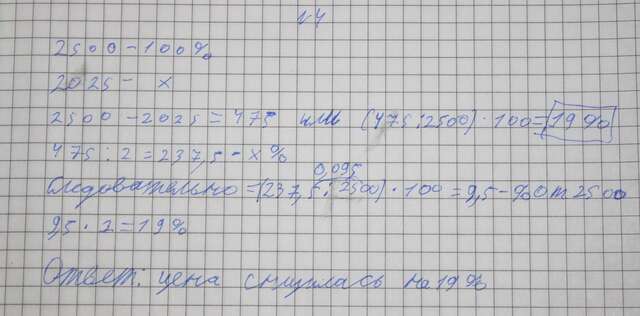 №4
2500 - 100%
2025 - x
2500 - 2025 = 475 или (475 : 2500) · 100 = 19%
475 : 2 = 237,5 - x%
0,095
Следовательно = (237,5 : 2500) · 100 = 9,5 - % от 2500
9,5 · 2 = 19%
Ответ: цена снизилась на 19%